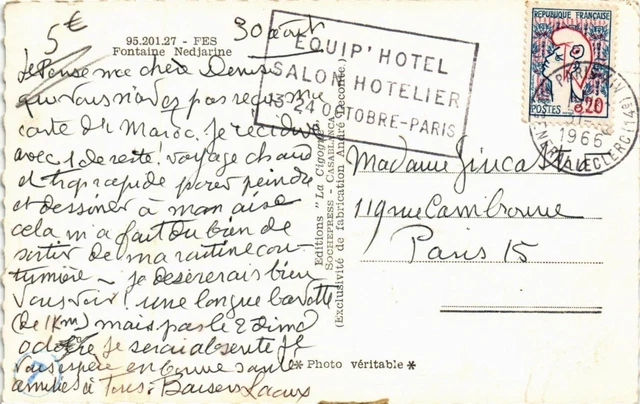 5€
30 août
95.201.27 - FES
Fontaine Nedjarine
Je Pense ma chère Denise
que vous n'avez pas reçu me
carte du Maroc. Je récidive
avec de reste! voyage chaud
et trop rapide pour peindre
et dessiner à mon aise
cela m'a fait du bien de
sortir de ma routine cou-
tumière - je désirerais bien
vous voir! une longue bavette
(de 1 Km) mais pas le 2 Dima
octobre je serai absente Je
vous espère en bonne santé
amitiés à Tous. Baisers
Editions "La Cigogne"
SOCHEPRESS - CASABLANCA
(Exclusivité de fabrication André Leconte)
EQUIP'HOTEL
SALON HOTELIER
13 24 OCTOBRE-PARIS
RÉPUBLIQUE FRANÇAISE
POSTES 0,20
PARIS
1966
GENERAL LECLERC (14e)
Madame
119 rue Cambronne
Paris 15
** Photo véritable *